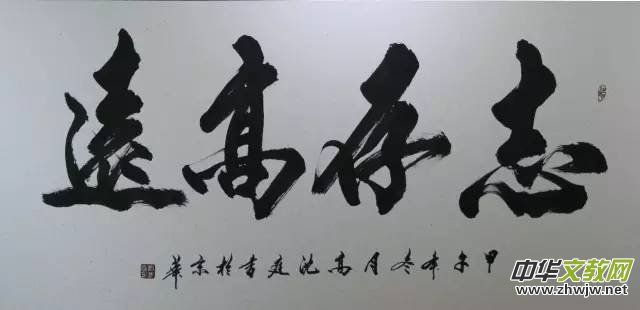 志存高遠
甲午年冬月高书於京華
中华文教网
www.zhwjw.net